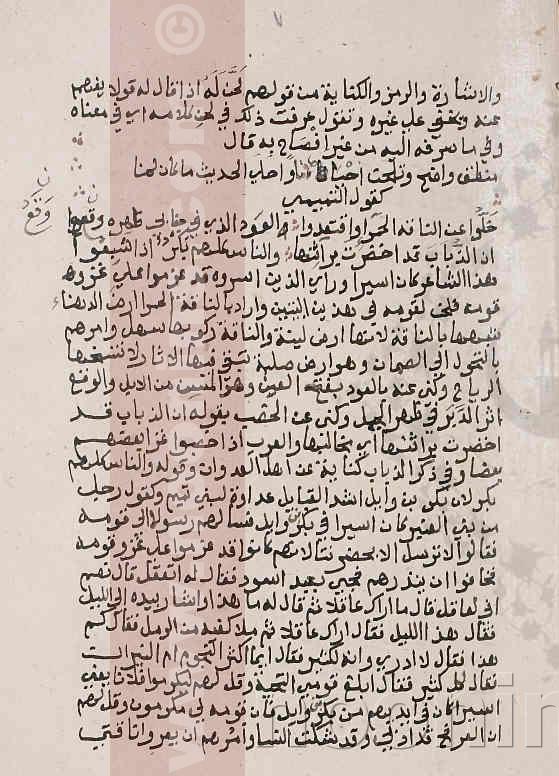 والاشارة والرمز والكناية من قولهم لحن له اذا قال له قولا يفهم
عنه ويخفى على غيره وتقول عرفت ذلك في لحن كلامه اي في معناه
وفي ما صرفه اليه من غير افصاح به قال
منطق واضح وتلحن احيانا واحلى الحديث ما كان لحنا
كقول التميمي
خلوا عن الناقة الحمرا واقتعدوا العود الذي في جنابى ظهره وقع
ان الذباب قد اخضرت براثنها والناس كلهم بكر اذا شبعوا
هذا الشاعر كان اسيرا وراى الذين اسروه قد عزموا على غزو
قومه فلحن لقومه في هذين البيتين واراد بالناقة الحمرا ارض الدهناء
شبهها بالناقة لانها ارض لينة والناقة ركوبها سهل وامرهم
بالتحول الى الصمان وهو ارض صلبة
الرياح وكنى عنه بالعود بفتح العين وهو المسن من الابل والوقع
اثر الدبر في ظهر الجمل وكنى عن الخصب بقوله ان الذباب قد
اخضرت براثنها اي مخالبها والعرب اذا اخصبوا غزا بعضهم
بعضا وفي ذكر الذباب كناية عن اهل العدوان وقوله والناس كلهم
بكر لان بكر بن وايل اشد القبايل عداوة لبني تميم وكقول رجل
من بني العنبر كان اسيرا في بكر بن وايل فسالهم رسولا الى قومه
فقالوا لا ترسل الا بحضرتنا لانهم كانوا قد عزموا على غزو قومه
فخافوا ان ينذرهم فجي بعبد اسود فقال له اتعقل قال نعم
اني لعاقل قال ما اراك عاقلا ثم قال له ما هذا واشار بيده الى الليل
فقال هذا الليل فقال اراك عاقلا ثم ملا كفيه من الرمل فقال كم
هذا فقال لا ادري وانه لكثير فقال ايما اكثر النجوم ام النيران
فقال كل كثير فقال ابلغ قومي التحية وقل لهم ليكرموا فلانا يعني
اسيرا كان في ايديهم من بكر بن وايل فان قومه لي مكرمون وقل لهم
ان العرفج قد ادبى وقد شكت النسا وامرهم ان يعروا ناقتي